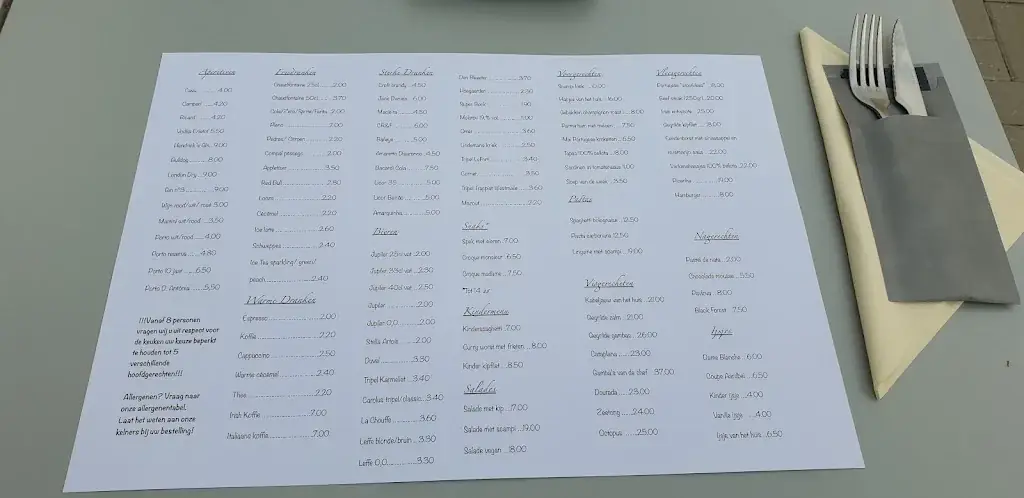 Aperitieven
Cava 4.00
Campari 4.20
Ricard 4.20
Vodka Eristof 5.50
Hendrick's Gin 9.00
Bulldog 8.00
London Dry 9.00
Gin n°3 9.00
Wijn rood/wit/rosé 3.00
Martini wit/rood 3.50
Porto wit/rood 4.00
Porto reserva 4.80
Porto 10 jaar 6.50
Porto D. Antónia 5.50
!!!Vanaf 8 personen
vragen wij u uit respect voor
de keuken uw keuze beperkt
te houden tot 5
verschillende
hoofdgerechten!!!
Allergenen? Vraag naar
onze allergenentabel.
Laat het weten aan onze
kelners bij uw bestelling!
Frisdranken
Chaudfontaine 25cl 2.00
Chaudfontaine 50cl 3.70
Cola/Cola/Sprite/Fanta 2.00
2.00
Pedras/ Campon 2.30
Compal pessego 2.00
Appletiser 3.50
Red Bull 2.80
Looza 2.20
Cécémel 2.20
Ice latte 2.60
Schweppes 2.40
Ice Tea sparkling/ green/
peach 2.40
Warme Dranken
Espresso 2.00
Koffie 2.20
Cappuccino 2.50
Warme cécémel 2.40
Thee 2.20
Irish Koffie 7.00
Italiaans koffie 7.00
Sterke Dranken
Croft brandy 4.50
Jack Daniels 6.00
Macieira 4.50
CR&F 6.00
Baileys 5.00
Amaretto Disaronno 4.50
Bacardi Cola 7.50
Licor 43 5.00
Licor Beirão 5.00
Amarguinha 5.00
Bieren
Jupiler 25cl vat 2.00
Jupiler 33cl vat 2.30
Jupiler 40cl vat 2.50
Jupiler 2.00
Jupiler 0,0 2.00
Stella Artois 2.00
Duvel 3.30
Tripel Karmeliet 3.40
Carolus tripel/classic 3.40
La Chouffe 3.60
Leffe blonde/bruin 3.30
Leffe 0,0 3.30
3.70
Hoegaarden 2.30
Super Bock 1.90
Orval 3.60
Lindemans kriek 2.50
Tripel LeFort 3.40
Cornet 3.50
Tripel Trappist Westmalle 3.60
Mazout 2.20
Snaks*
Spek met eieren 7.00
Croque monsieur 6.50
Croque madame 7.50
Kindermenu
Kinderspaghetti 7.00
Curry worst met frieten 8.00
Kinder kipfilet 8.50
Salades
Salade met kip 17.00
Salade met scampi 19.00
Salade vegan 18.00
Voorgerechten
Scampi look 15.00
Scampi van het huis 16.00
Gebakken champignon kruid 8.00
Parma ham met meloen 7.50
Mix Portugese kroketten 6.50
Tapas 100% bellota 18.00
Soep van de week 3.50
Pastas
Spaghetti bolognaise 12.50
Pasta carbonara 12.50
Linguine met scampi 19.00
Visgerechten
Kabeljauw van het huis 21.00
Gegrilde zalm 21.00
Gegrilde gambas 26.00
Cataplana 23.00
Garnituur van de chef 37.00
Dourada 23.00
Zeetong 24.00
Octopus 25.00
Vleesgerechten
Portugees "stoofvlees" 18.00
20.00
25.00
Gegrilde kipfilet 18.00
rozemarijn saus 22.00
Varkenshaasjes 100% bellota 22.00
Picanha 19.00
Hamburger 18.00
Nagerechten
Pastel de nata 2.00
Chocolade mousse 5.50
Pavlova 8.00
Black Forest 7.50
Ijsjes
Dame Blanche 6.00
Coupe Aardbei 6.50
Kinder ijsje 4.00
Vanille ijsje 4.00
Ijsje van het huis 6.50